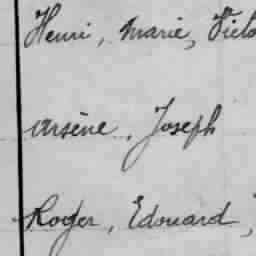 Henri, Marie,
arsène, Joseph
Roger, Edouard,